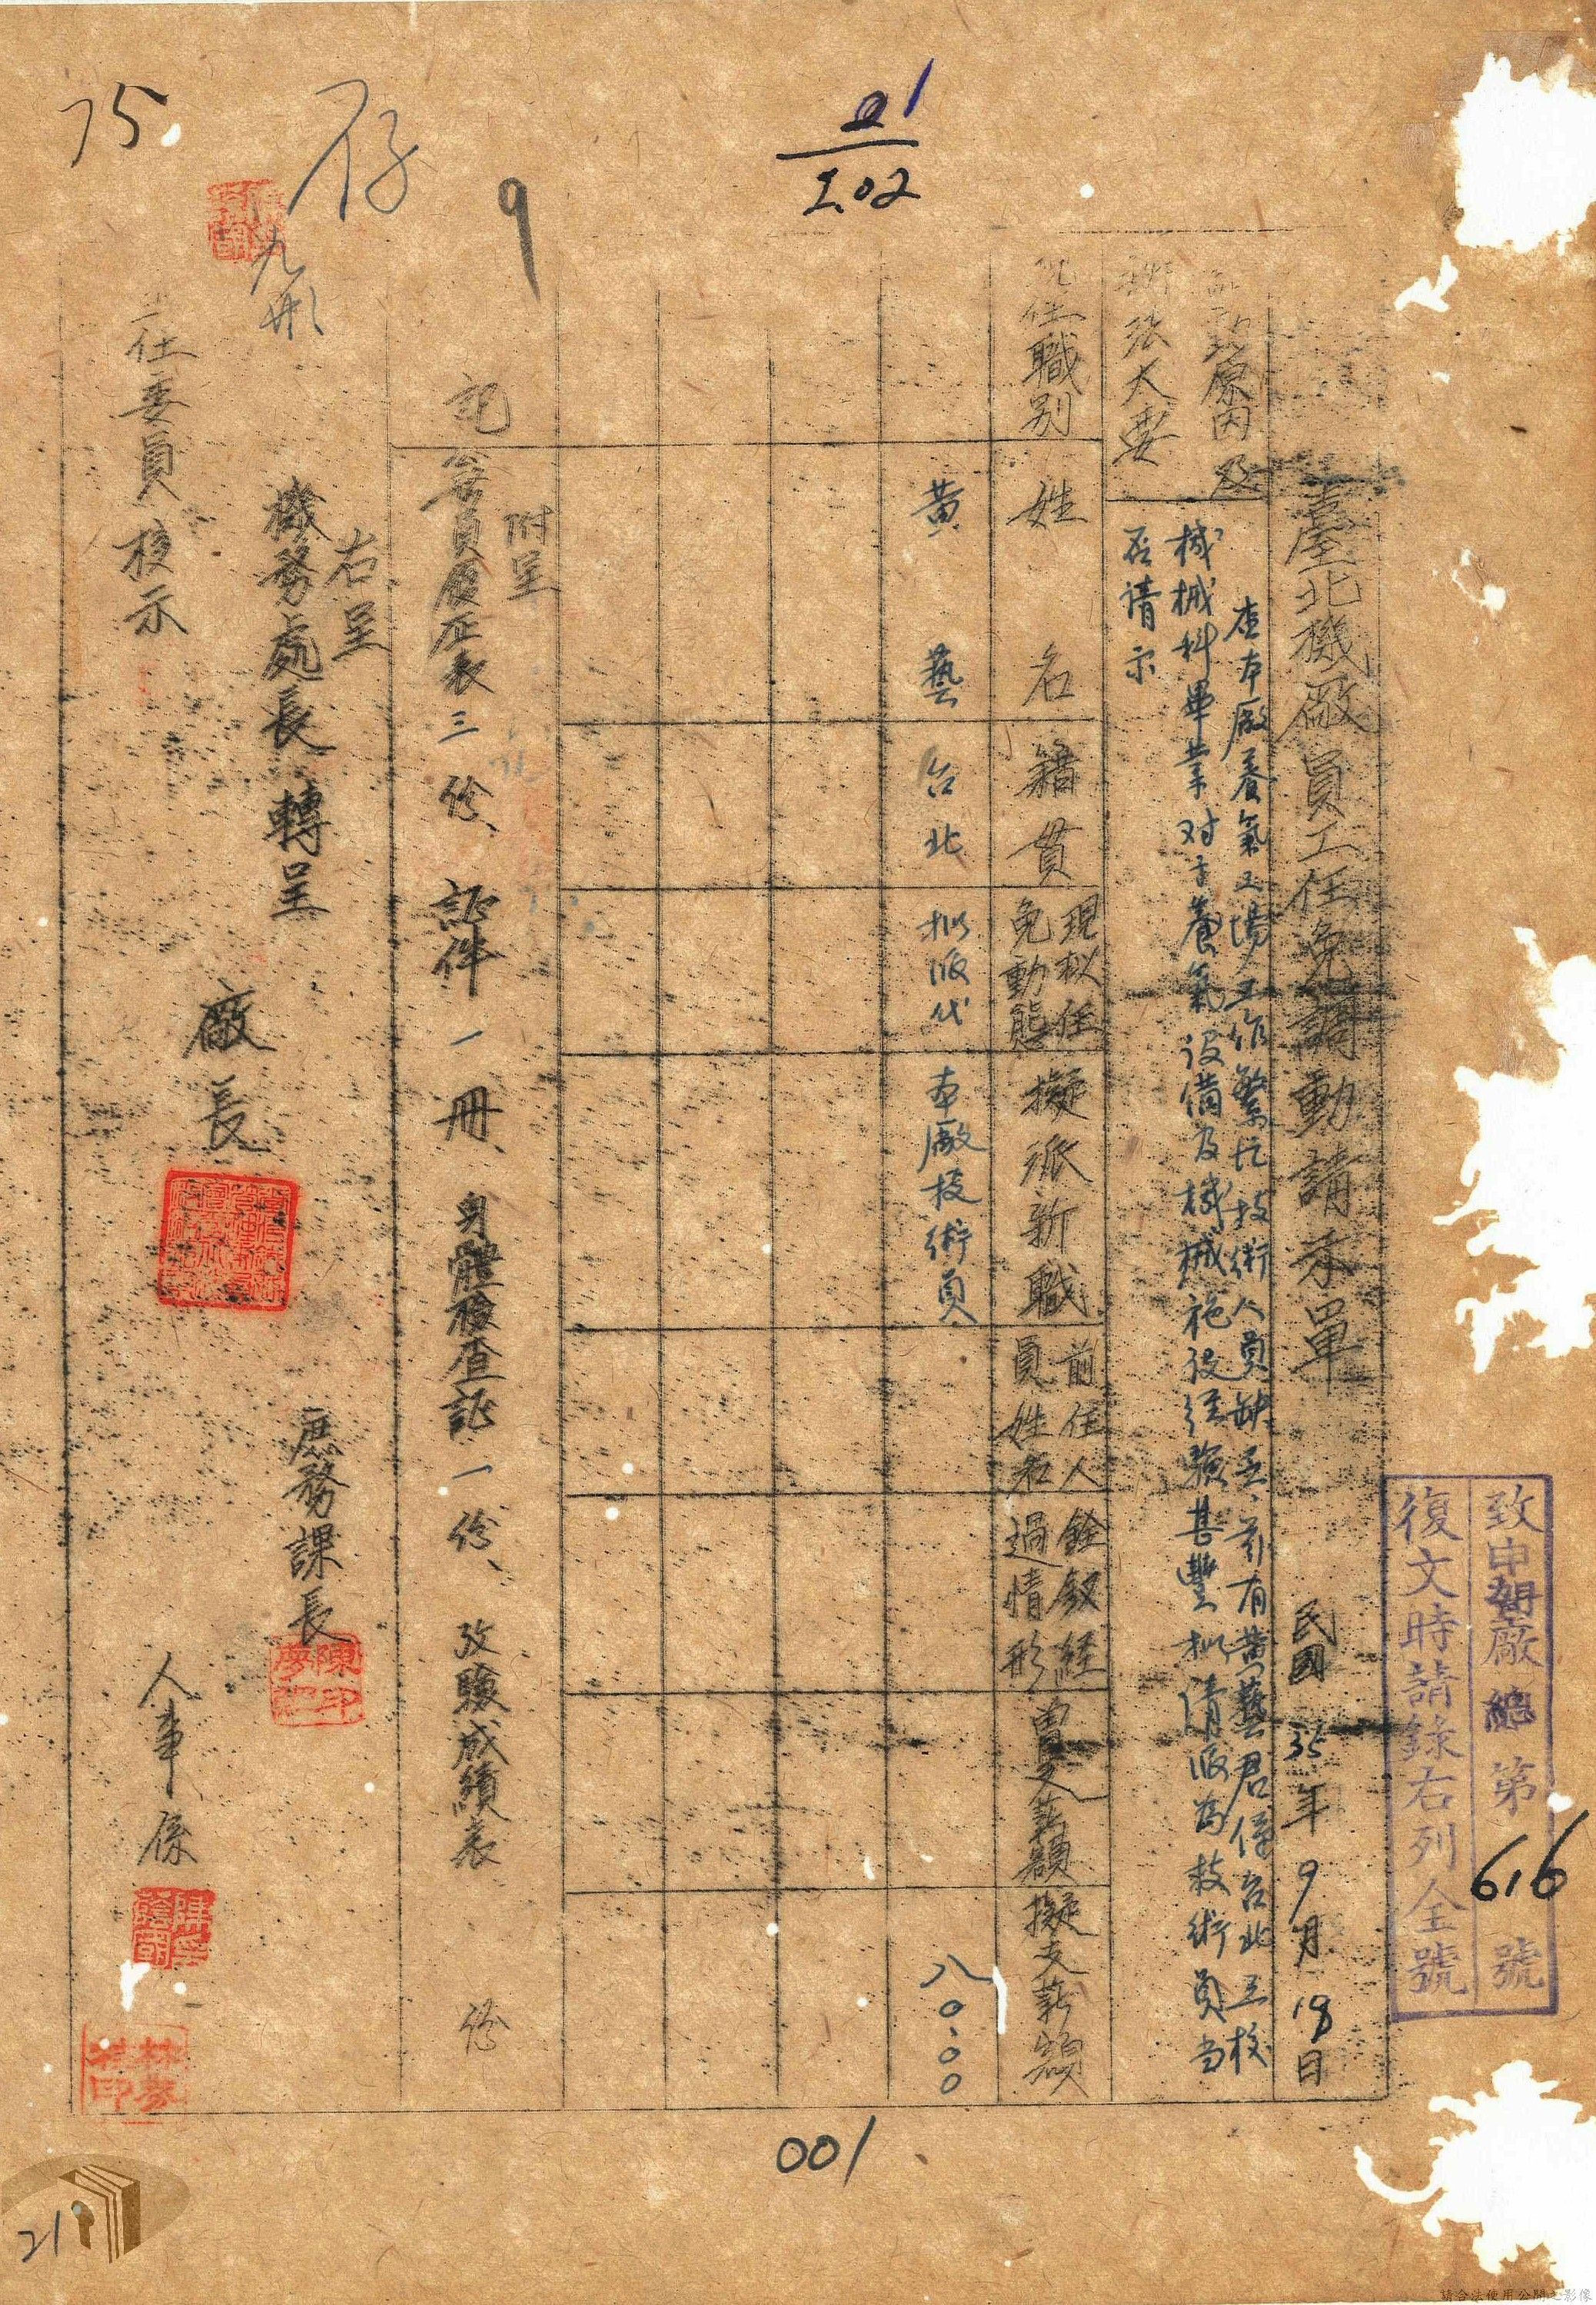 75
存
九
9
21
5.02
致申朝廠總第616號
復文時請錄右列全號
臺北機廠員工任免調動請示單
民國35年9月18日
原因及
張大要
查本廠養氣工場工作繁忙技術人員缺乏、茲有黃藝君係台北工校
機械科畢業对于養氣設備及機械施設經驗甚豐擬請派為技術員当
否請示
現任職別
姓名
籍貫
現拟任免動態
擬派新職
前任人員姓名
銓叙経過情形
曾支薪額
擬支薪額
黃藝
台北
拟派代
本廠技術員
八〇.〇〇
記
附呈
委員履歷表三份、證件一冊、身體檢查証一份、攷驗成績表 份
右呈
機務處長轉呈
主任委員核示
廠長
庶務課長
陳夢
人事係
陳蔭朝
001
21
請合法使用公開之影像